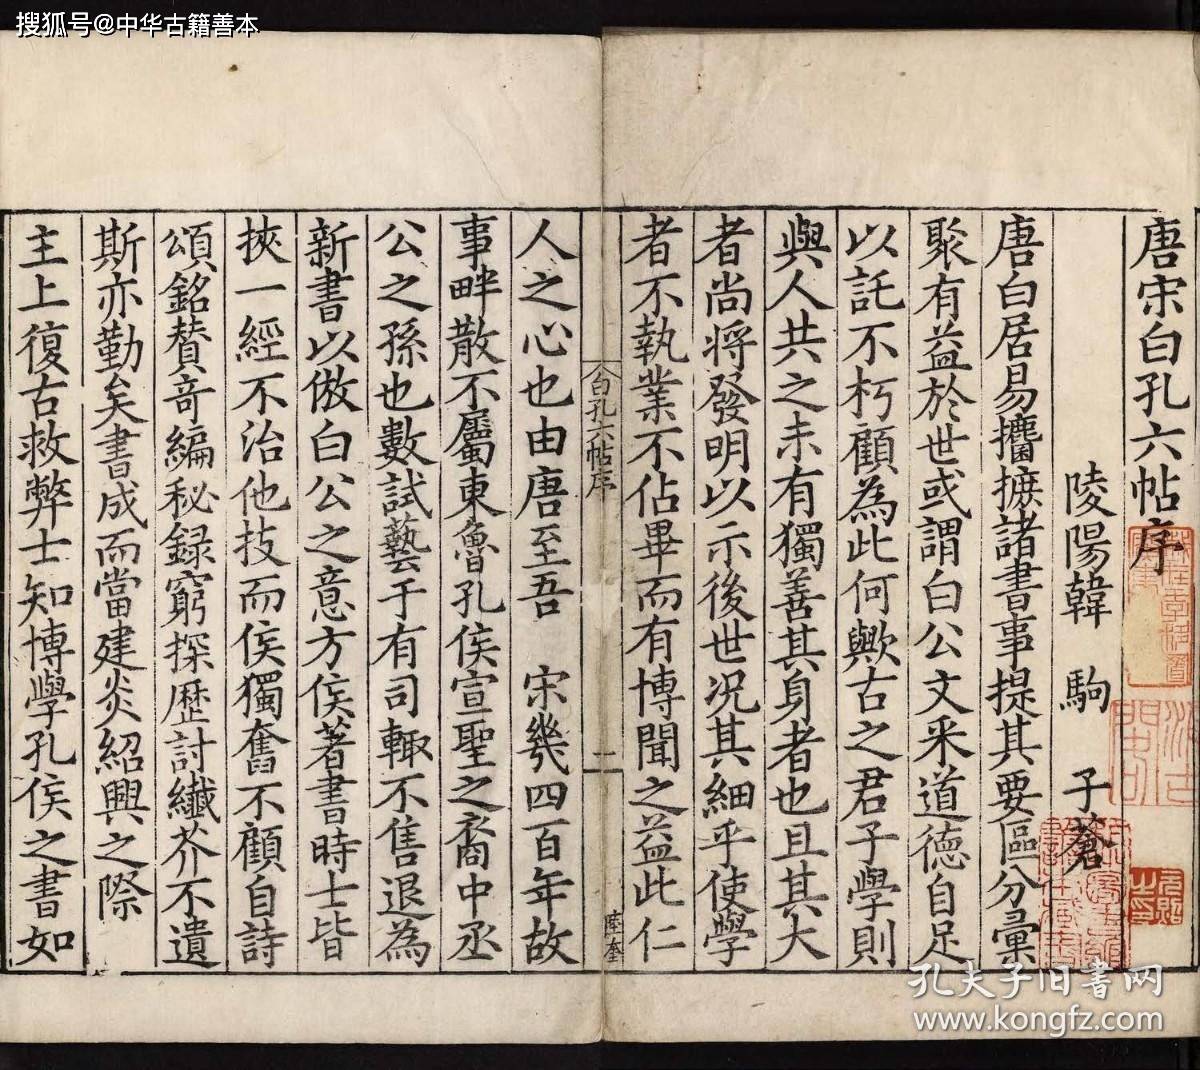 搜狐号@中华古籍善本
唐宋白孔六帖序
陵陽韓 駒 子蒼
唐白居易攟摭諸書事提其要區分彙
聚有益於世或謂白公文采道德自足
以託不朽顧為此何歟古之君子學則
與人共之未有獨善其身者也且其大
者尚將發明以示後世况其細乎使學
者不執業不佔畢而有博聞之益此仁
白孔六帖序
一
陸奎
人之心也由唐至吾 宋幾四百年故
事畔散不屬東魯孔侯宣聖之裔中丞
公之孫也數試藝于有司輙不售退為
新書以倣白公之意方侯著書時士皆
挾一經不治他技而侯獨奮不顧自詩
頌銘賛竒編秘録窮探歷討纖芥不遺
斯亦勤矣書成而當建炎紹興之際
主上復古救弊士知博學孔侯之書如
孔夫子旧书网
www.kongfz.com